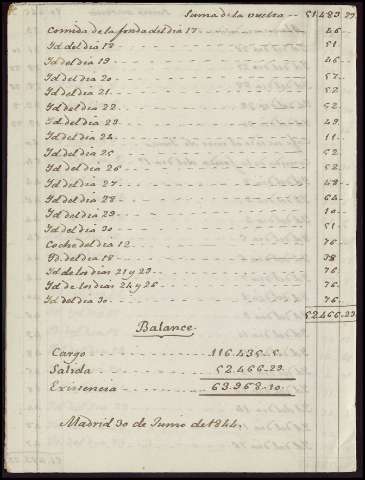 Suma de la vuelta -- 51.483.. 23.
Comida de la fonda del dia 17 - - - 46
Yd. del dia 18 - - - 51
Yd. del dia 19 - - - 46
Yd. del dia 20 - - - 57
Yd. del dia 21 - - - 52
Yd. del dia 22 - - - 52
Yd. del dia 23 - - - 49
Yd. del dia 24 - - - 11
Yd. del dia 25 - - - 52
Yd. del dia 26 - - - 52
Yd. del dia 27 - - - 48
Yd. del dia 28 - - - 64
Yd. del dia 29 - - - 10
Yd. del dia 30 - - - 51
Coche del dia 12 - - - 76
Yd. del dia 18 - - - 38
Yd. de los dias 21 y 23 - - - 76
Yd. de los dias 24 y 26 - - - 76
Yd. del dia 30 - - - 76
52.466..23
Balance.
Cargo - - - 116.435..
Salida - - - 52.466..23.
Existencia - - - 63.968..10.
Madrid 30 de Junio de 1844.